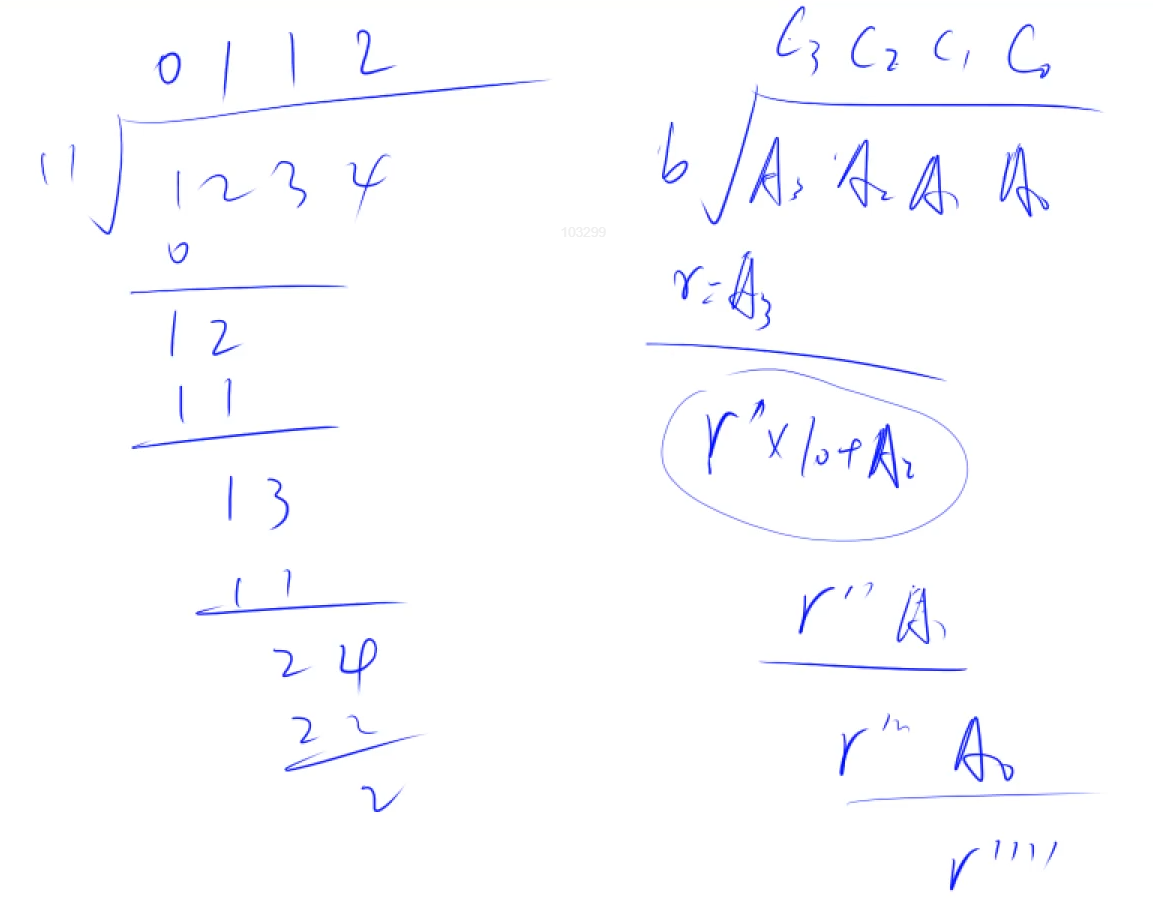 0 1 1 2
11 1 2 3 4
0
1 2
1 1
1 3
1 1
2 4
2 2
2
C₃ C₂ C₁ C₀
b A₃ A₂ A₁ A₀
r=A₃
r'×10+A₂
r'' A₁
r''' A₀
r''''
103299